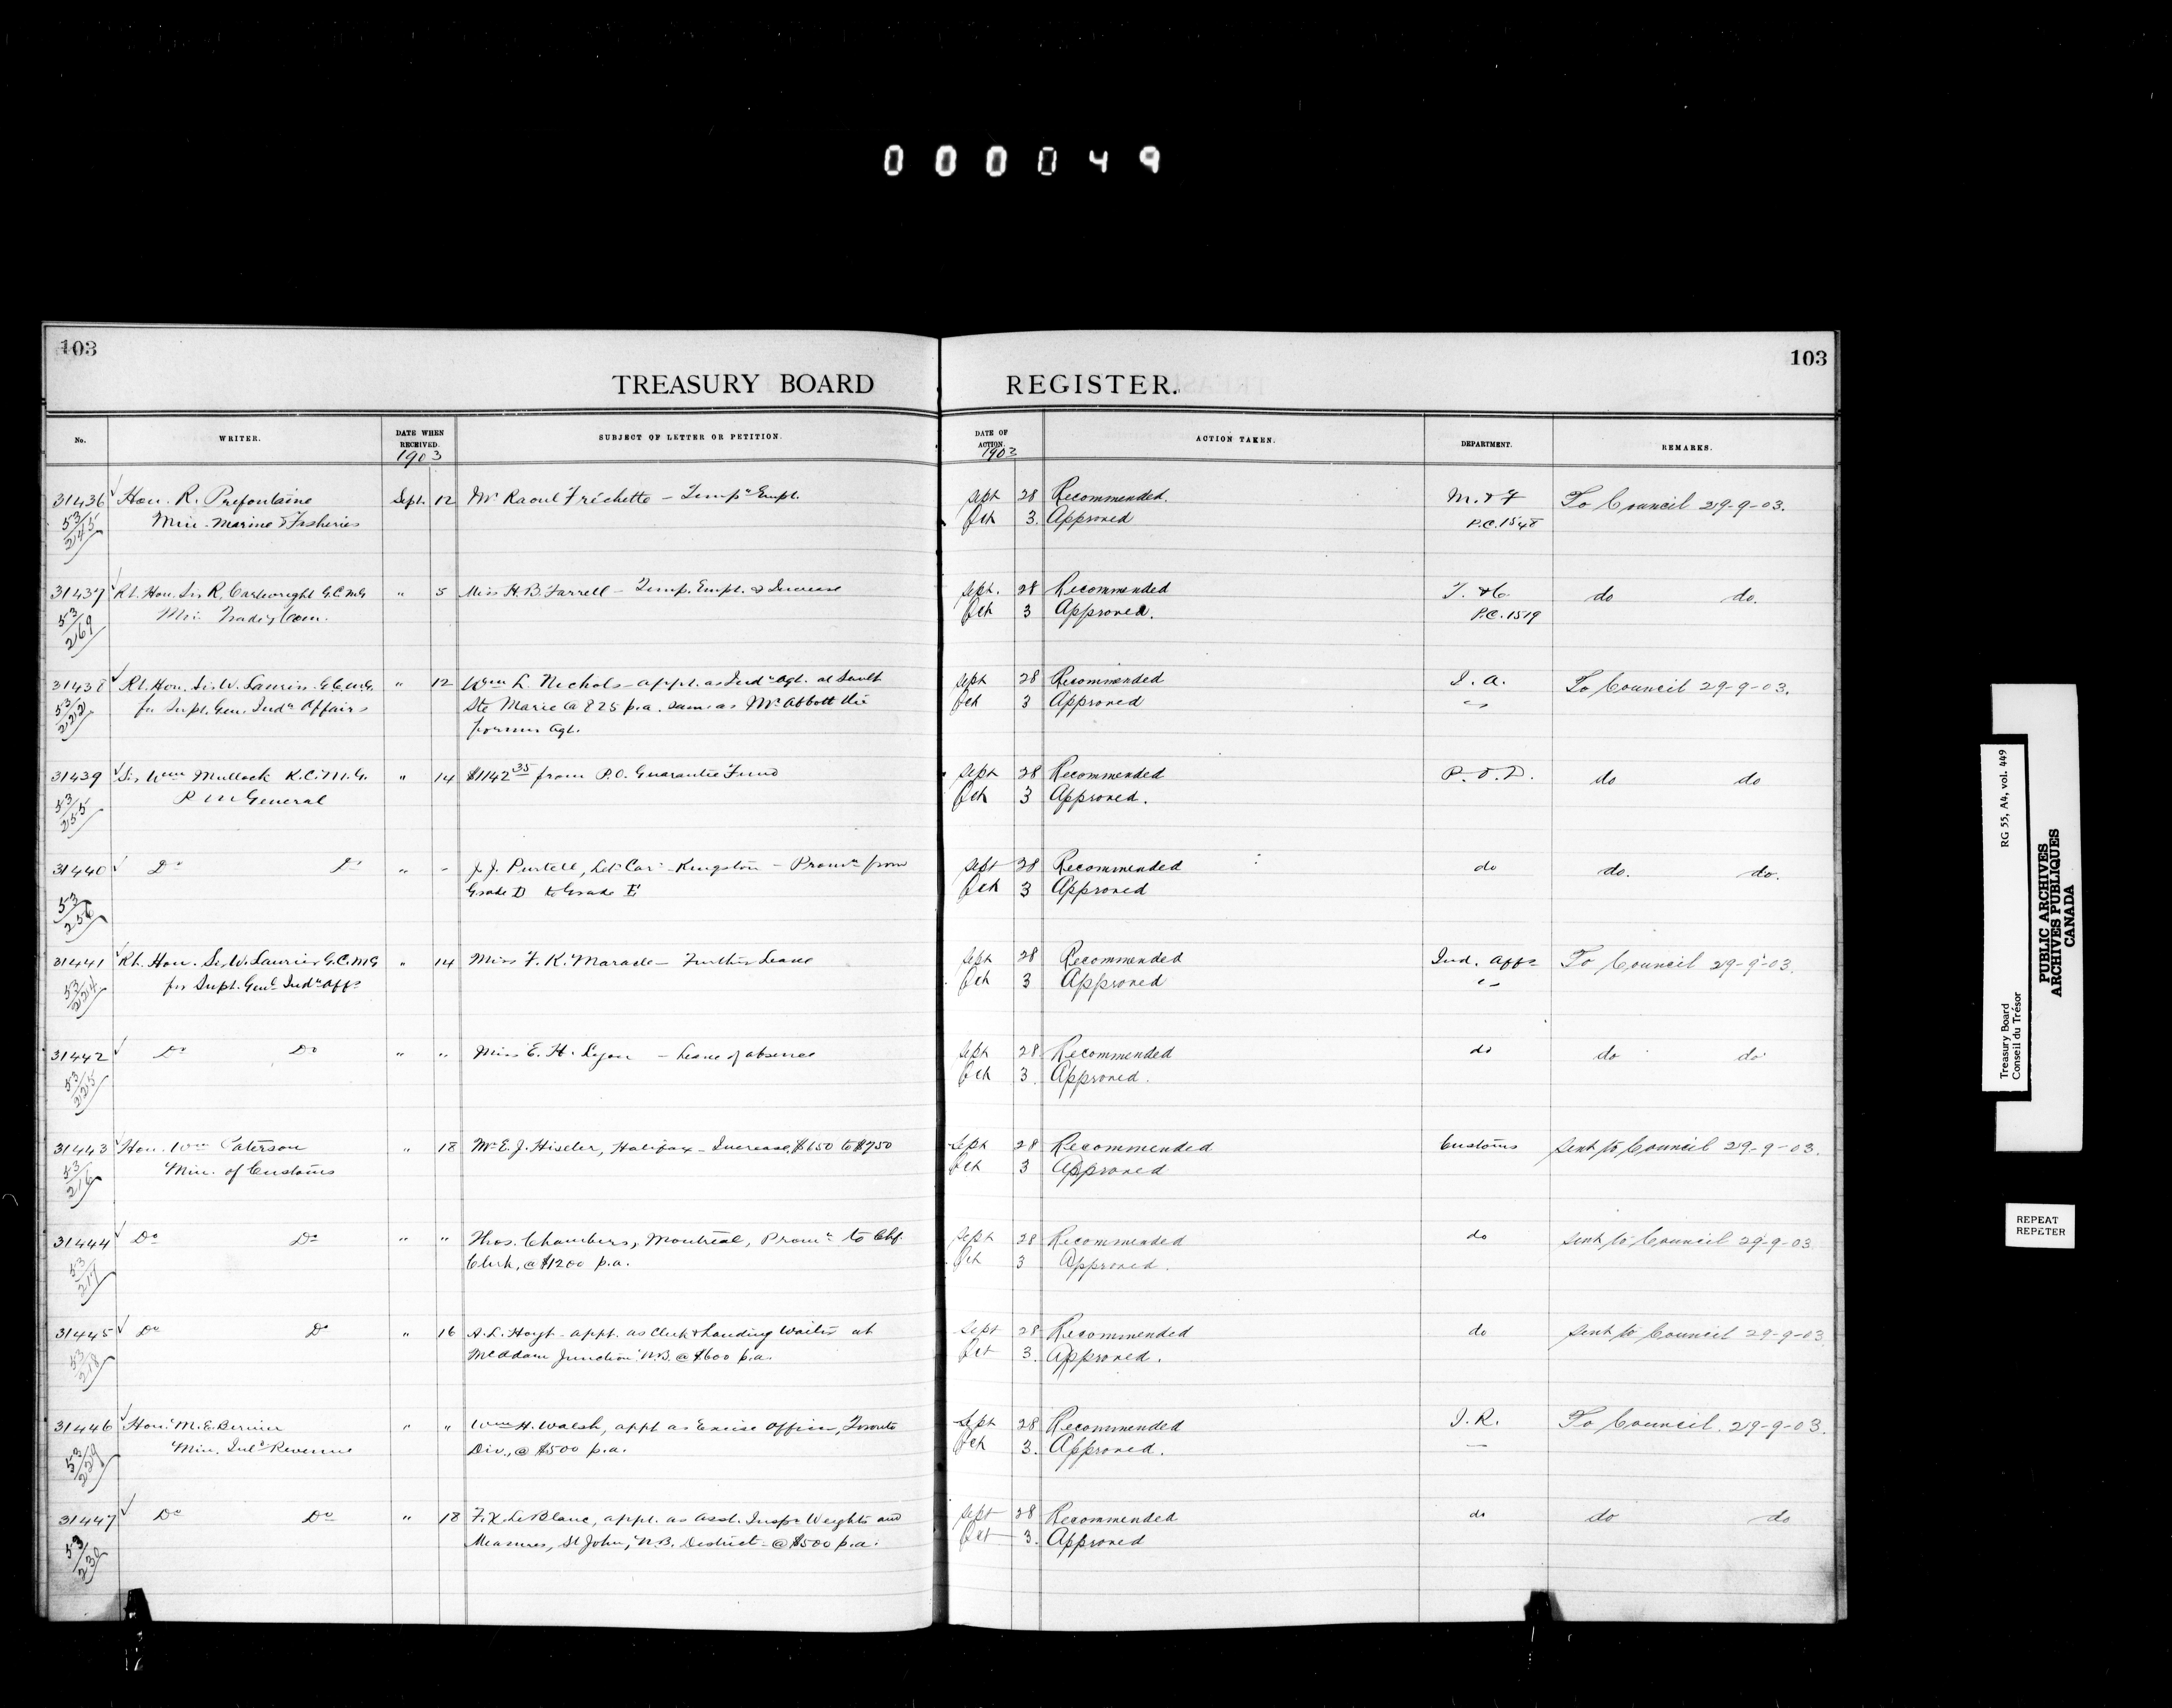 000049
103
103
TREASURY BOARD REGISTER.
No. WRITER. DATE WHEN RECEIVED. SUBJECT OF LETTER OR PETITION. DATE OF ACTION. ACTION TAKEN. DEPARTMENT. REMARKS.
1903 1903
31436 Hon. R. Prefontaine Sept. 12 Mr Raoul Frechette - Tempy Empt. Sept 28 Recommended. M. & F To Council 29-9-03.
53/245 Min. Marine & Fisheries Oct 3. Approved P.C. 1548
31437 Rt. Hon. Sir R. Cartwright G.C.M.G " 5 Miss H. B. Farrell - Temp. Empt. & Increase Sept. 28 Recommended T. & C. do do.
53/269 Min. Trade & Com. Oct 3 Approved. P.C. 1519
31438 Rt. Hon. Sir W. Laurier G.C.M.G. " 12 Wm L. Nichols - appt. as Indn Agt. at Sault Sept 28 Recommended I. A. To Council 29-9-03.
53/222 for Supt. Gen. Indn Affairs Ste Marie @ 825 p.a. same as Mr Abbott the Oct 3 Approved "
former Agt.
31439 Sir Wm Mullock K.C.M.G. " 14 $1142 35 from P.O. Guarantee Fund Sept 28 Recommended P. O. D. do do
53/255 P M General Oct 3 Approved.
31440 Do Do " " J. J. Purtell, Let Car - Kingston - Promn from Sept 28 Recommended do do. do.
53/256 Grade D to Grade E Oct 3 Approved
31441 Rt. Hon. Sir W. Laurier G.C.M.G " 14 Miss F. K. Maracle - Further Leave Sept 28 Recommended Ind. Affs To Council 29-9-03.
53/224 for Supt. Genl Indn Affs Oct 3 Approved "
31442 Do Do " " Miss E. H. Lyon - Leave of absence Sept 28 Recommended do do do
53/225 Oct 3. Approved.
31443 Hon. Wm Paterson " 18 Mr E. J. Hiseler, Halifax - Increase, $650 to $750 Sept 28 Recommended Customs Sent to Council 29-9-03.
53/216 Min. of Customs Oct 3 Approved
31444 Do Do " " Thos. Chambers, Montreal, Promn to Chf. Sept 28 Recommended do Sent to Council 29-9-03
53/217 Clerk, @ $1200 p.a. Oct 3 Approved.
31445 Do Do " 16 A. L. Hoyt - appt. as Clerk & Landing Waiter at Sept 28 Recommended do Sent to Council 29-9-03
53/218 McAdam Junction N.B. @ $600 p.a. Oct 3. Approved.
31446 Hon. M. E. Bernier " " Wm H. Walsh, appt as Excise Officer, Toronto Sept 28 Recommended I. R. To Council. 29-9-03.
53/229 Min. Inld Revenue Div., @ $500 p.a. Oct 3. Approved.
31447 Do Do " 18 F. X. LeBlanc, appt. as Asst. Inspr Weights and Sept 28 Recommended do do do
53/230 Measures, St John, N.B. District - @ $500 p.a. Oct 3. Approved
RG 55, A4, vol. 449
Treasury Board
Conseil du Trésor
PUBLIC ARCHIVES
ARCHIVES PUBLIQUES
CANADA
REPEAT
REPETER